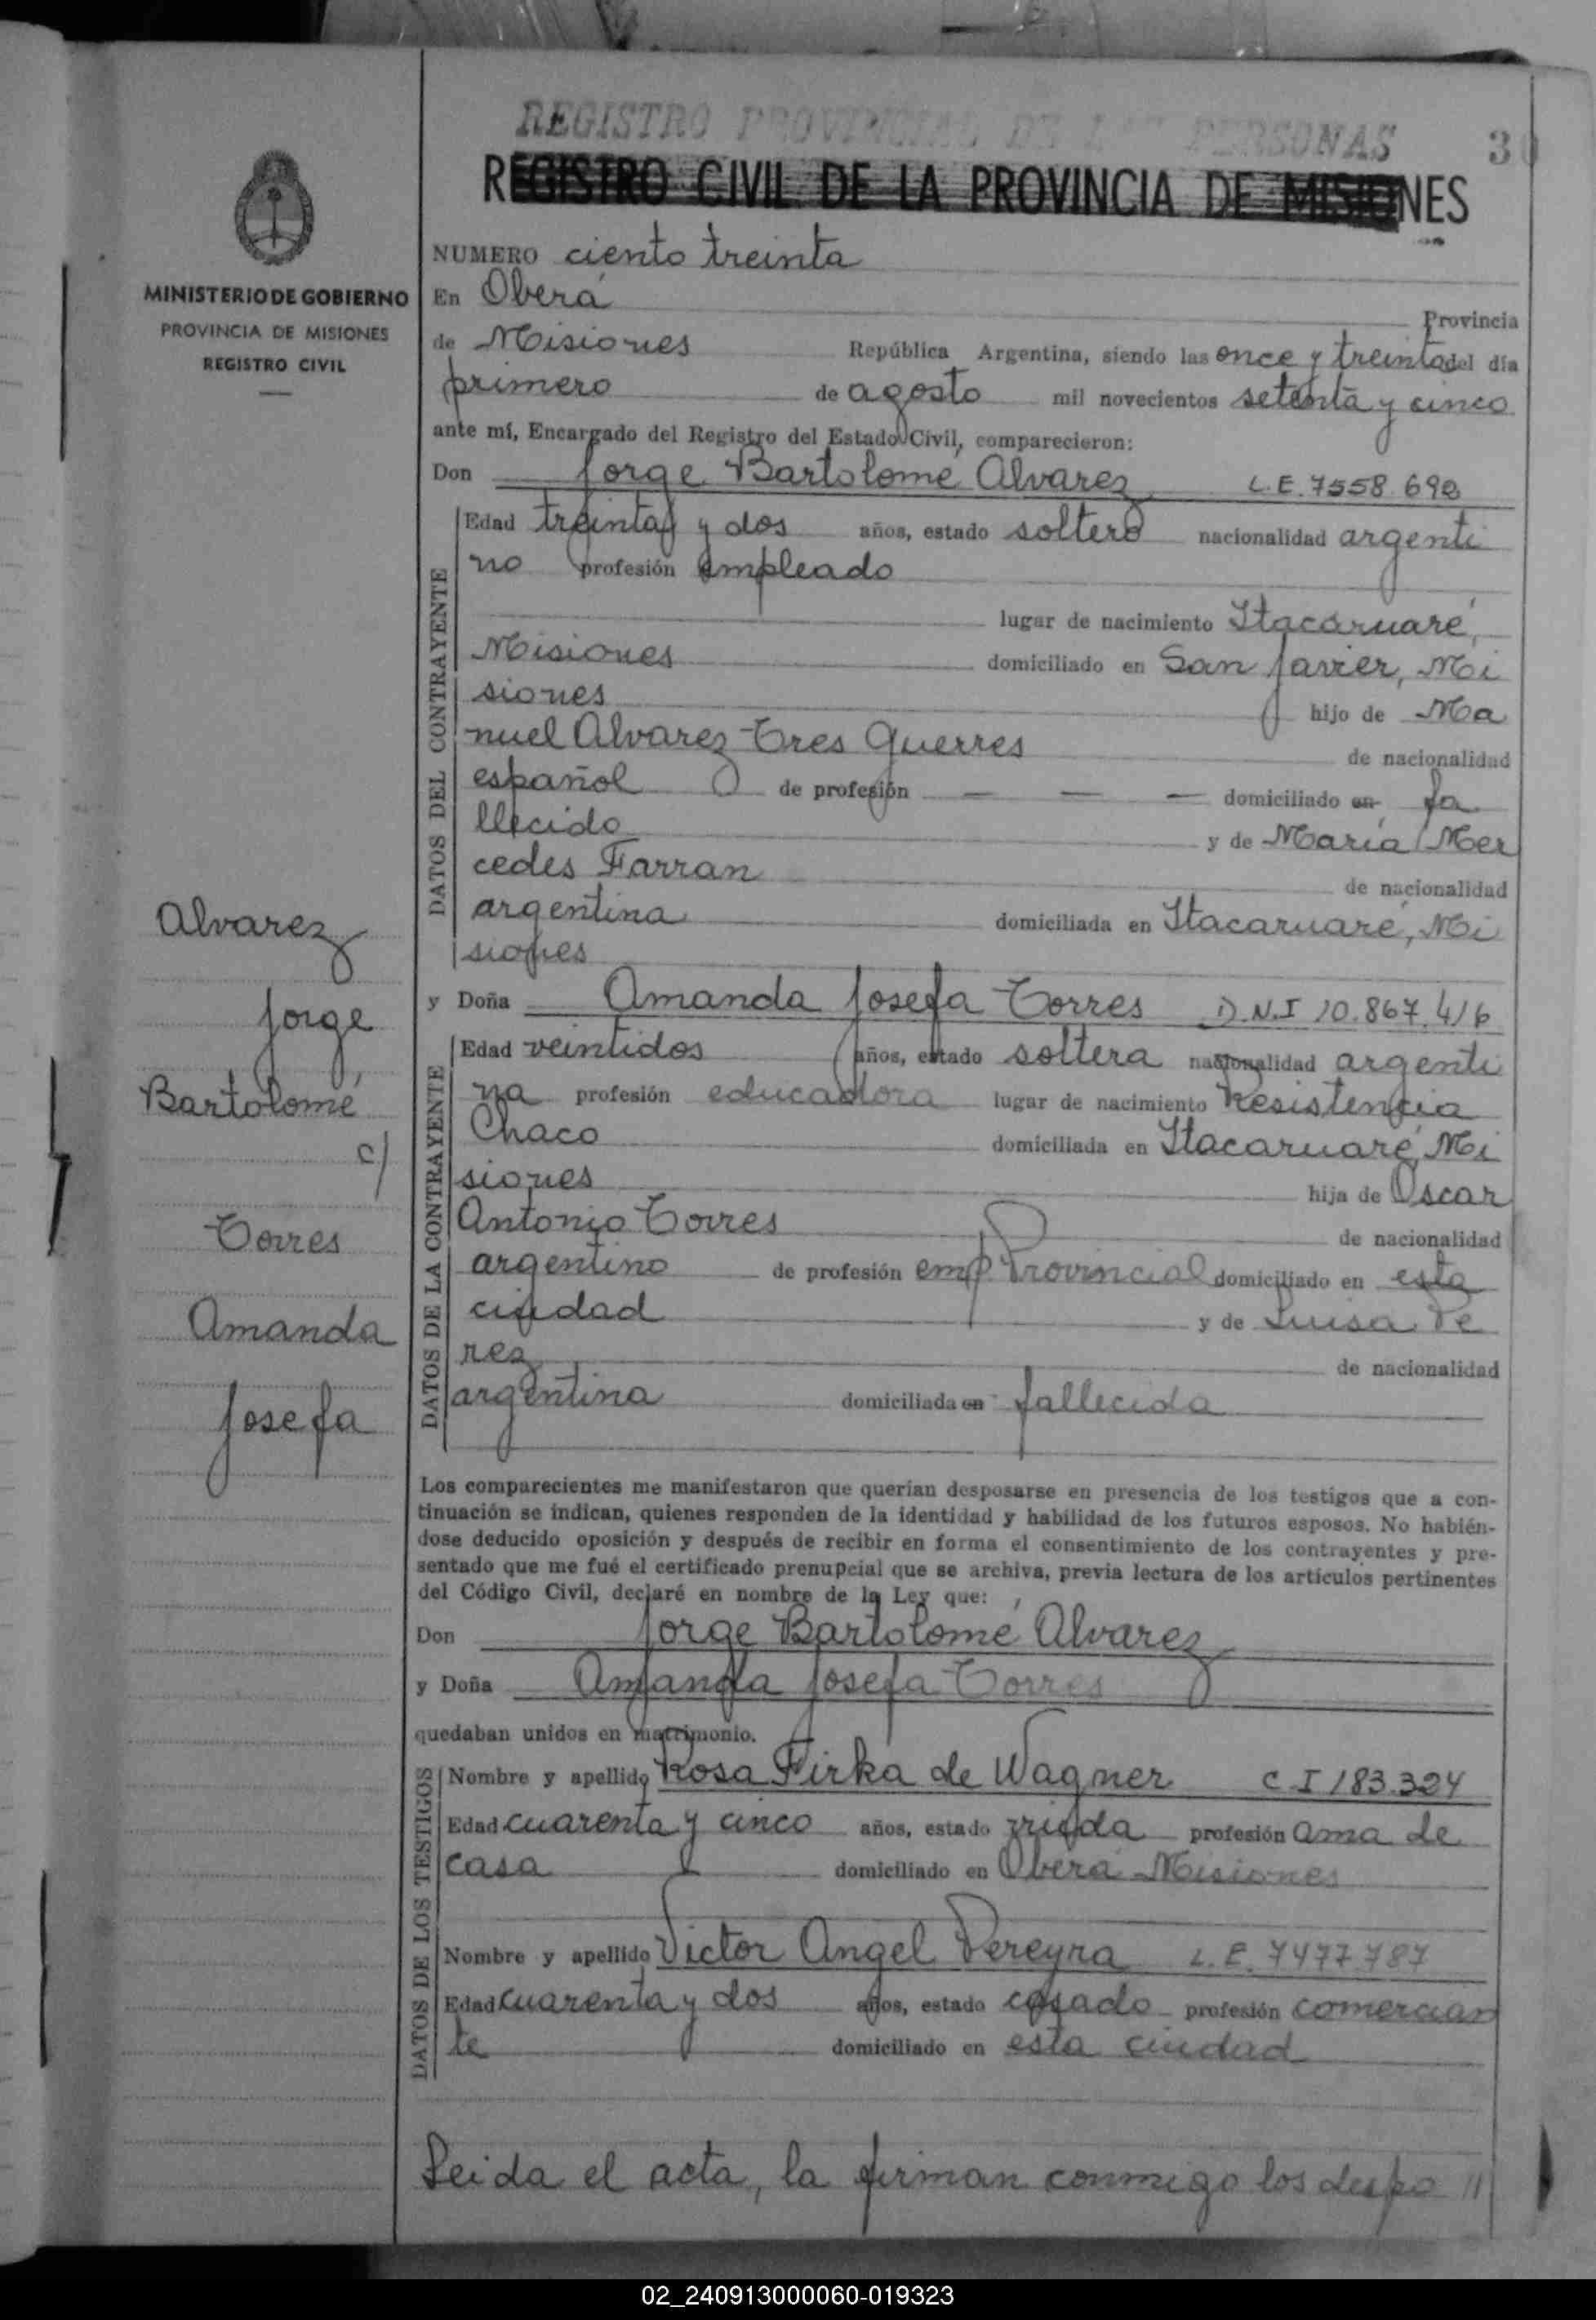 REGISTRO PROVINCIAL DE LAS PERSONAS
REGISTRO CIVIL DE LA PROVINCIA DE MISIONES
MINISTERIO DE GOBIERNO
PROVINCIA DE MISIONES
REGISTRO CIVIL
NUMERO ciento treinta
En Oberá Provincia
de Misiones República Argentina, siendo las once y treinta del día
primero de agosto mil novecientos setenta y cinco
ante mí, Encargado del Registro del Estado Civil, comparecieron:
Don Jorge Bartolomé Alvarez L.E. 7558.692
DATOS DEL CONTRAYENTE
Edad treinta y dos años, estado soltero nacionalidad argenti
no profesión empleado
lugar de nacimiento Itacaruaré,
Misiones domiciliado en San Javier, Mi
siones hijo de Ma
nuel Alvarez Tres Guerres de nacionalidad
español de profesión — — — domiciliado en fa
llecido y de María Mer
cedes Farran de nacionalidad
argentina domiciliada en Itacaruaré, Mi
siones
y Doña Amanda Josefa Torres D.N.I 10.867.416
DATOS DE LA CONTRAYENTE
Edad veintidos años, estado soltera nacionalidad argenti
na profesión educadora lugar de nacimiento Resistencia
Chaco domiciliada en Itacaruaré, Mi
siones hija de Oscar
Antonio Torres de nacionalidad
argentino de profesión emp. Provincial domiciliado en esta
ciudad y de Luisa Pe
rez de nacionalidad
argentina domiciliada en fallecida
Alvarez
Jorge
Bartolomé
c/
Torres
Amanda
Josefa
Los comparecientes me manifestaron que querían desposarse en presencia de los testigos que a con-
tinuación se indican, quienes responden de la identidad y habilidad de los futuros esposos. No habién-
dose deducido oposición y después de recibir en forma el consentimiento de los contrayentes y pre-
sentado que me fué el certificado prenupcial que se archiva, previa lectura de los artículos pertinentes
del Código Civil, declaré en nombre de la Ley que:
Don Jorge Bartolomé Alvarez
y Doña Amanda Josefa Torres
quedaban unidos en matrimonio.
DATOS DE LOS TESTIGOS
Nombre y apellido Rosa Firka de Wagner C.I 183.324
Edad cuarenta y cinco años, estado viuda profesión ama de
casa domiciliado en Oberá Misiones
Nombre y apellido Victor Angel Pereyra L.E. 7477.787
Edad cuarenta y dos años, estado casado profesión comercian
te domiciliado en esta ciudad
Leida el acta, la firman conmigo los despo //
02_240913000060-019323